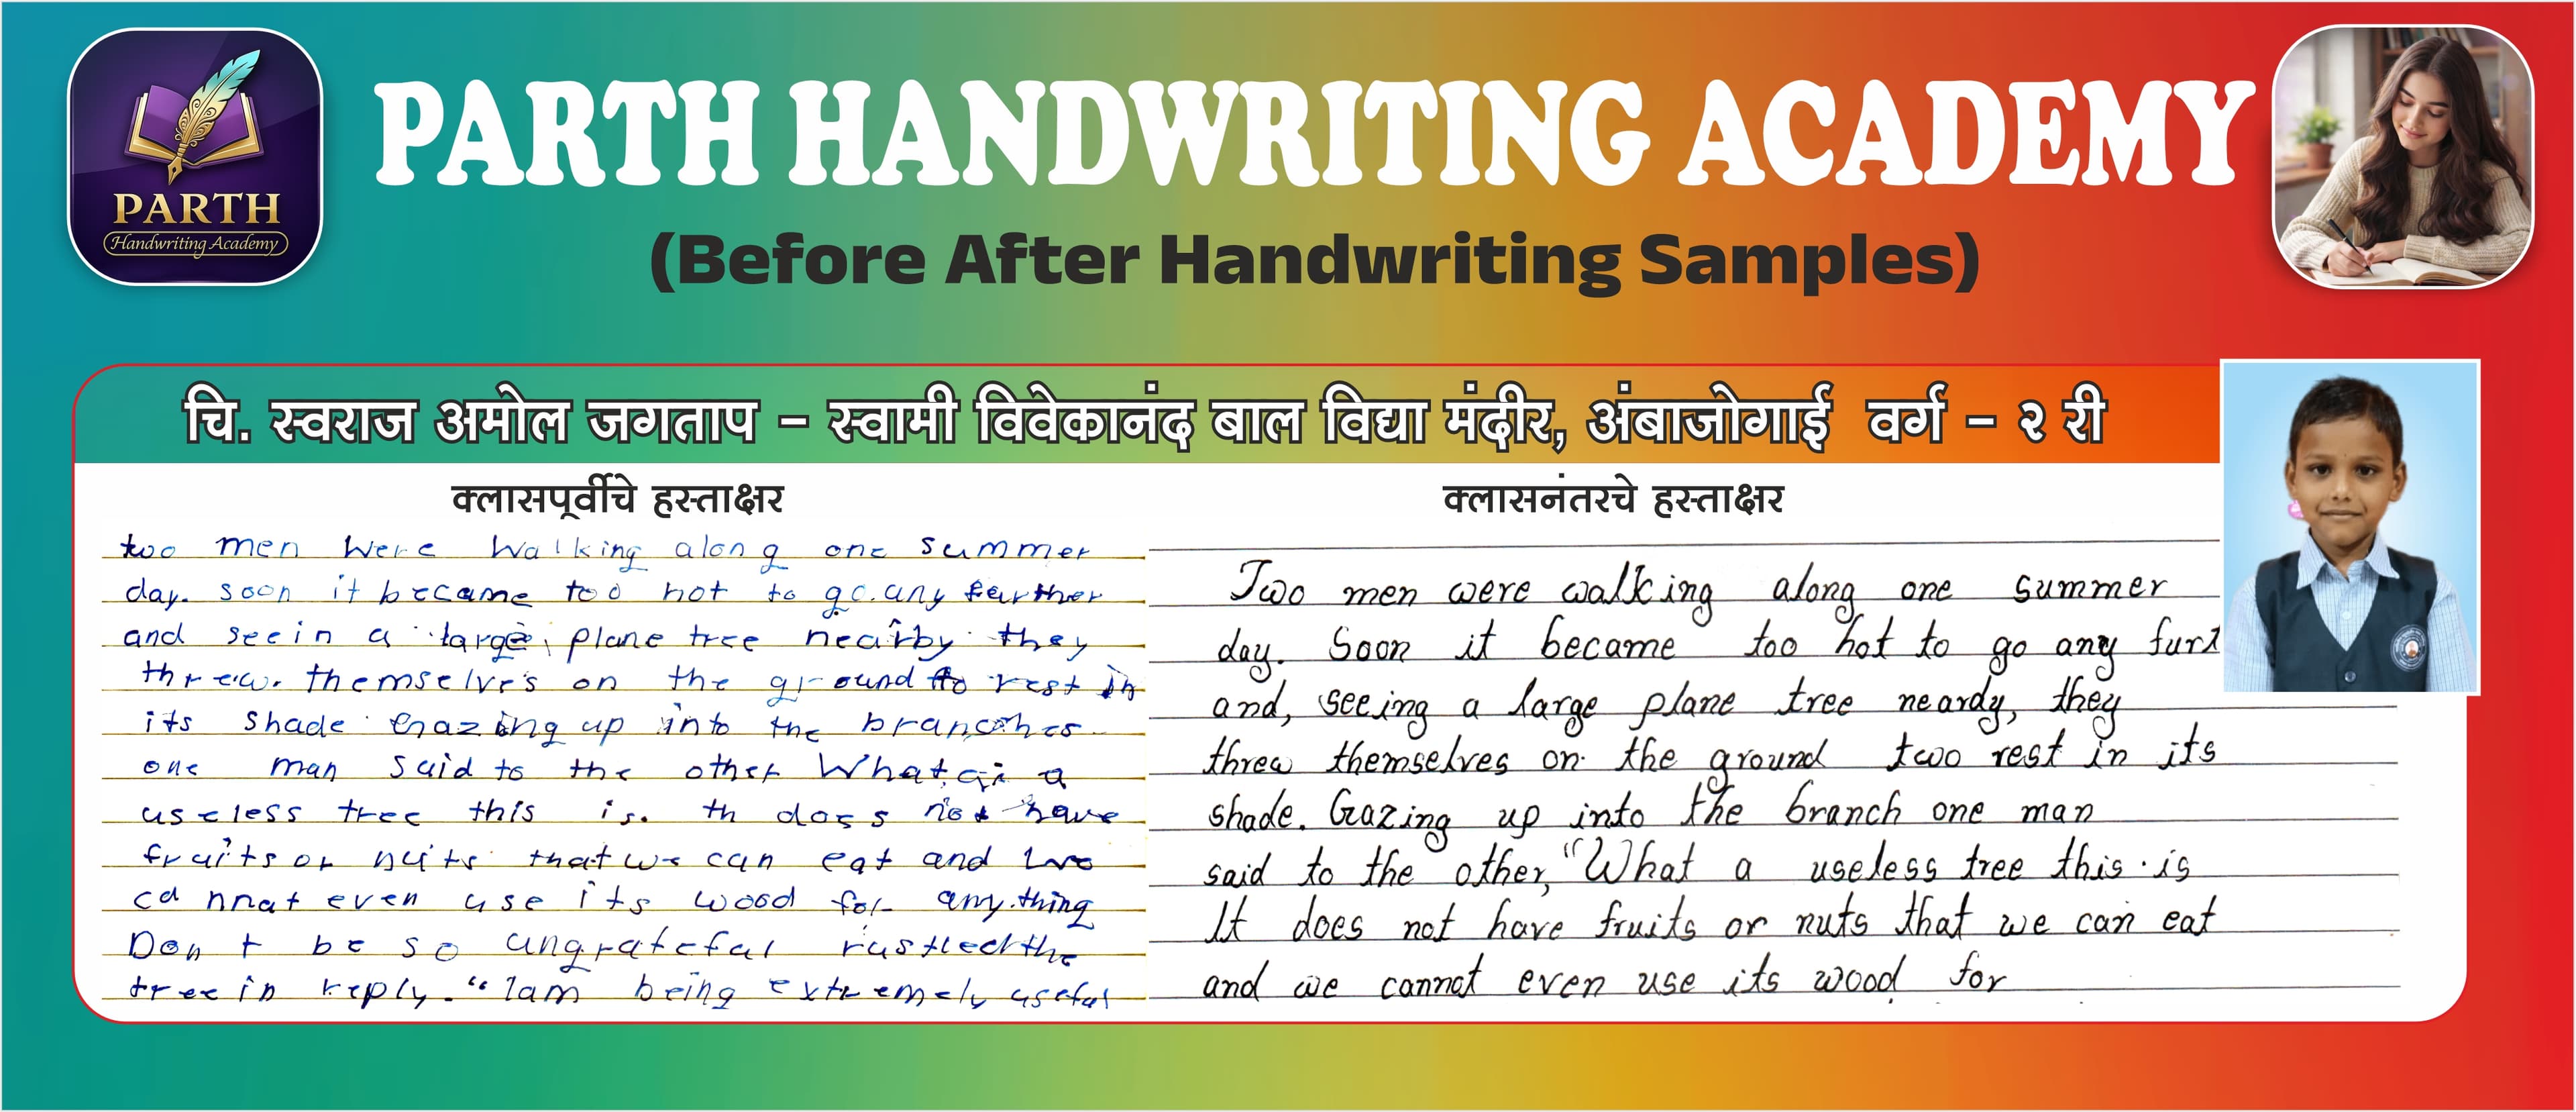 PARTH HANDWRITING ACADEMY
PARTH
Handwriting Academy
(Before After Handwriting Samples)
चि. स्वराज अमोल जगताप – स्वामी विवेकानंद बाल विद्या मंदीर, अंबाजोगाई वर्ग – २ री
क्लासपूर्वीचे हस्ताक्षर
two men were walking along one summer
day. soon it became too hot to go. any further
and seein a large plane tree nearby they
threw. themselves on the ground to rest in
its shade Gazing up into the branches
one man said to the other What a
useless tree this is. th does not have
fruits or nuts that we can eat and
ca nnat even use its wood for any.thing
Don t be so ungrateful rustled the
tree in reply. "Iam being extremely useful
क्लासनंतरचे हस्ताक्षर
Two men were walking along one summer
day. Soon it became too hot to go any furt
and, seeing a large plane tree neardy, they
threw themselves on the ground two rest in its
shade. Gazing up into the branch one man
said to the other, "What a useless tree this is
It does not have fruits or nuts that we can eat
and we cannot even use its wood for